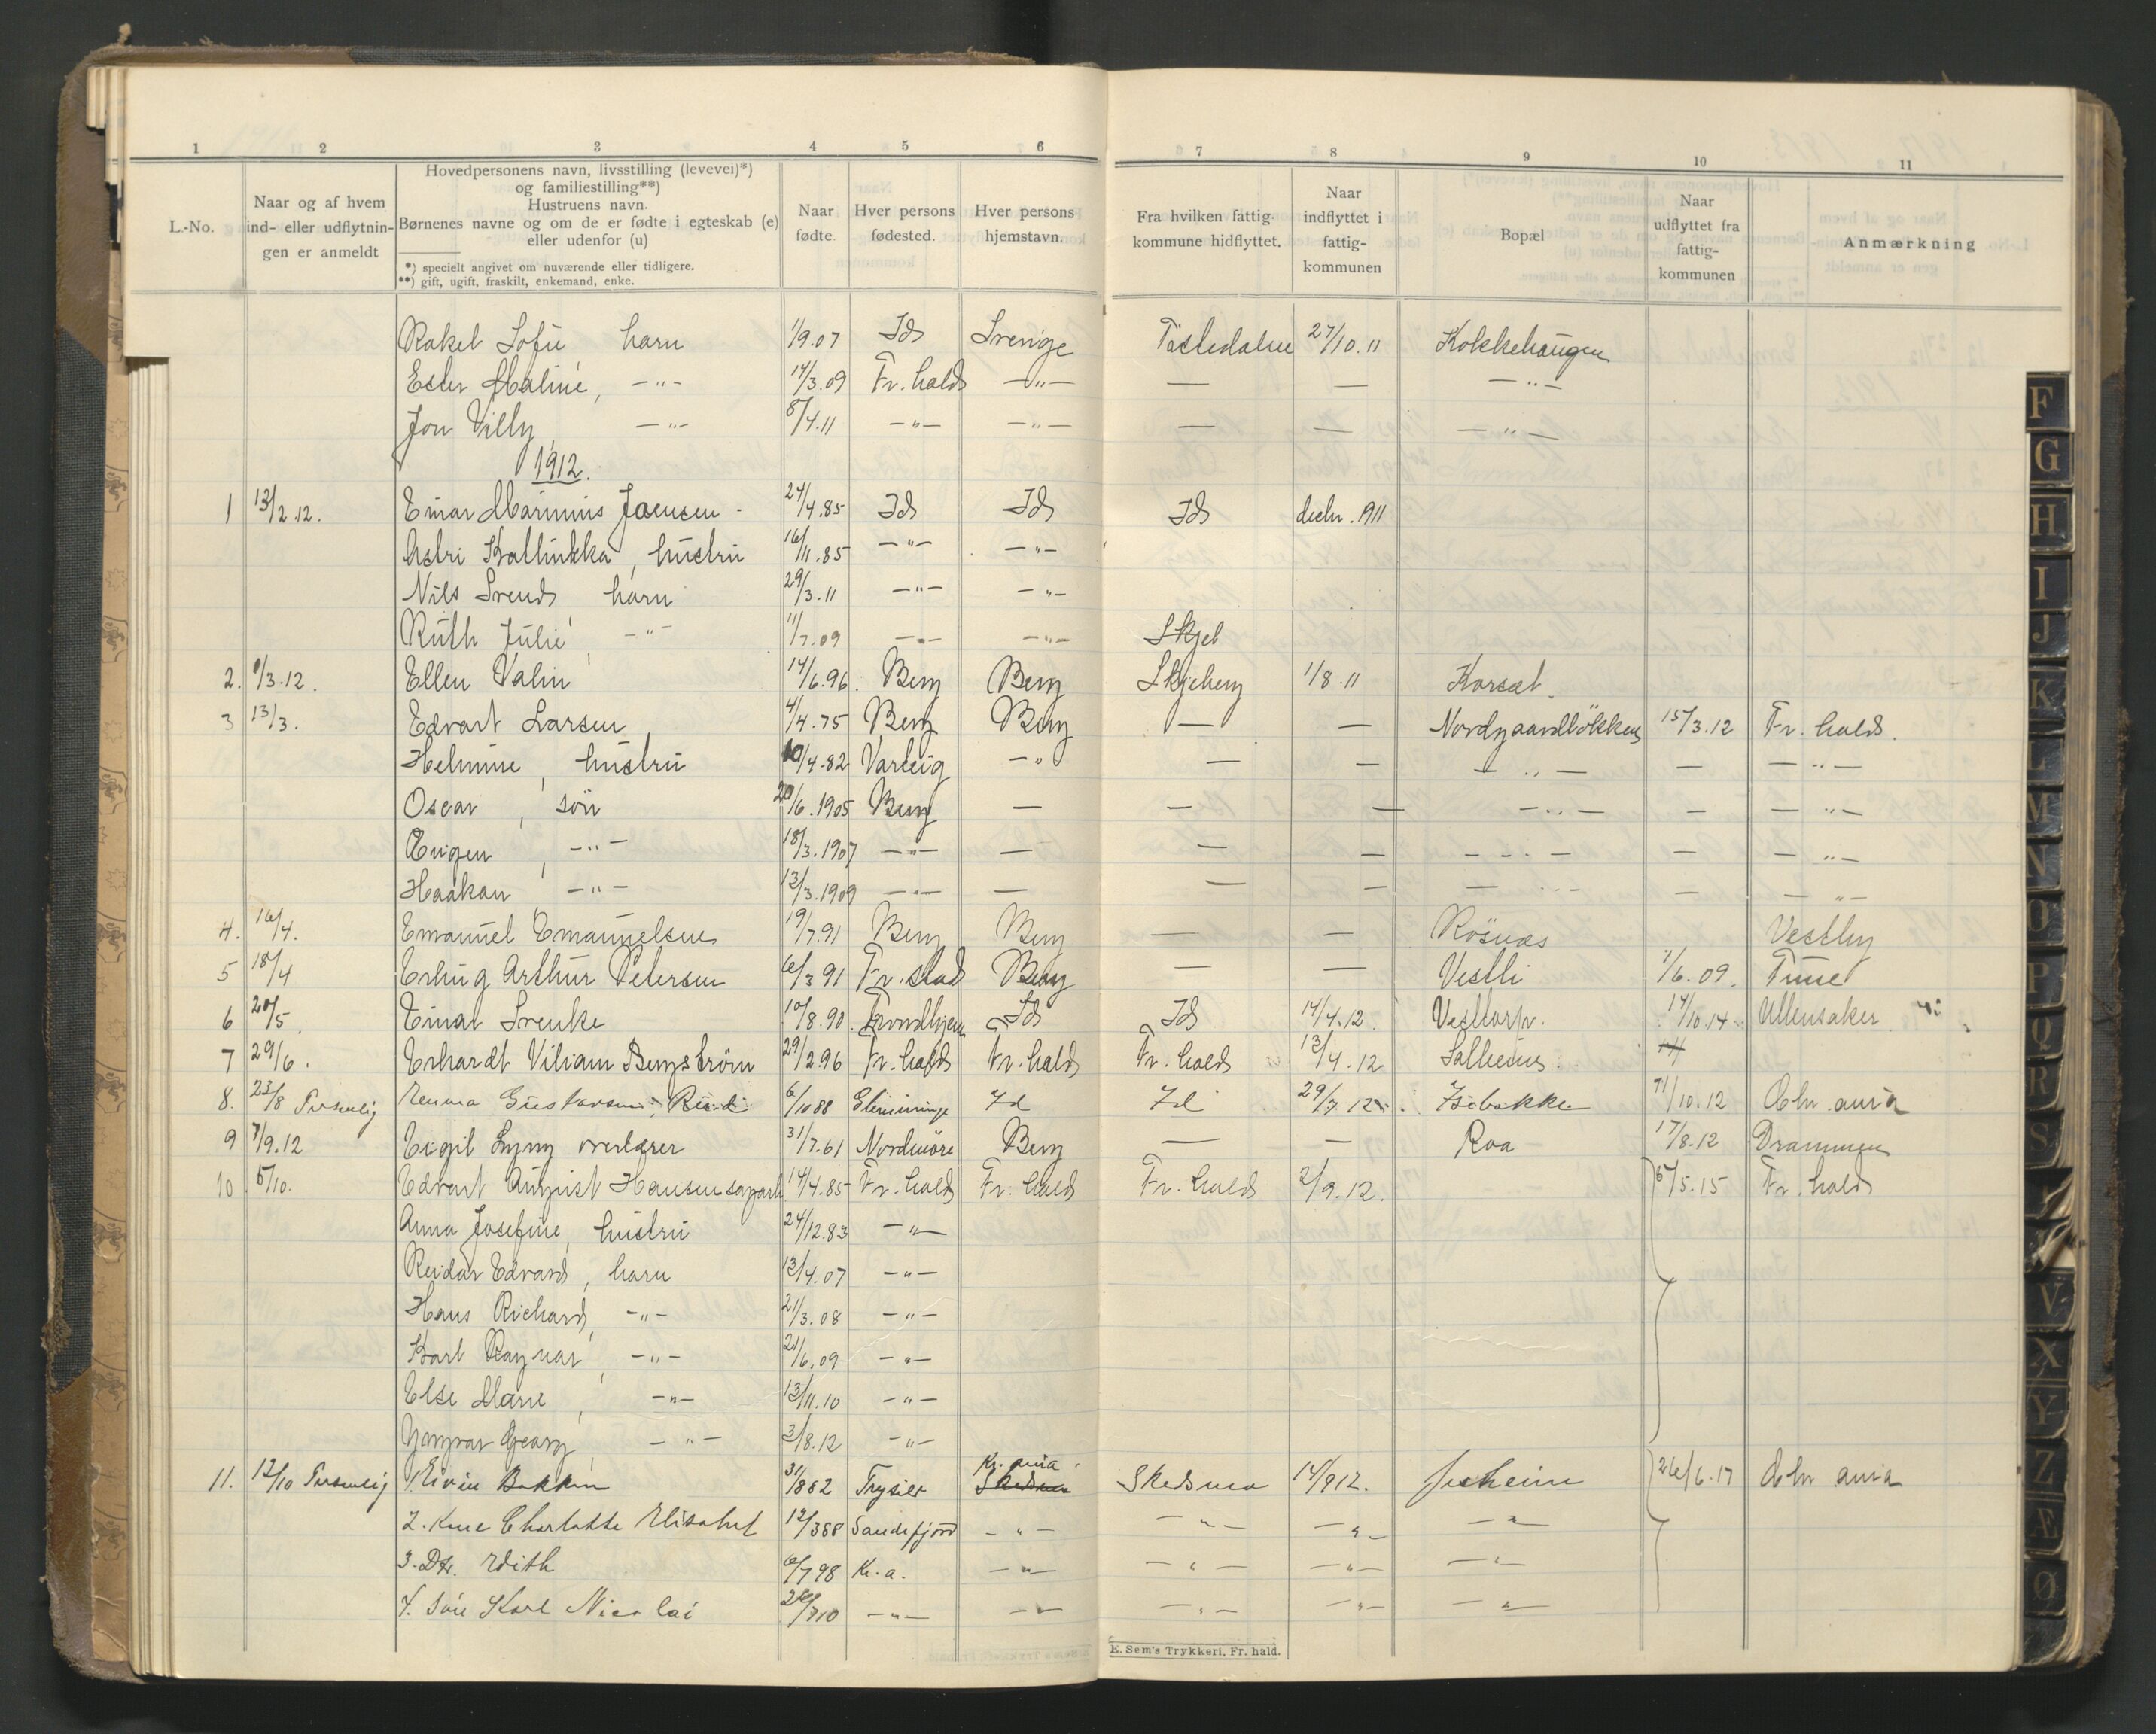 1 2 3 4 5 6 7 8 9 10 11
L.-No.
Naar og af hvem ind- eller udflytnin- gen er anmeldt
Hovedpersonens navn, livsstilling (levevei)*)
og familiestilling**)
Hustruens navn.
Børnenes navne og om de er fødte i egteskab (e)
eller udenfor (u)
*) specielt angivet om nuværende eller tidligere.
**) gift, ugift, fraskilt, enkemand, enke.
Naar fødte.
Hver persons fødested.
Hver persons hjemstavn.
Fra hvilken fattig- kommune hidflyttet.
Naar indflyttet i fattig- kommunen
Bopæl
Naar udflyttet fra fattig- kommunen
Anmærkning
Rakel Sofie barn 1/9.07 Id Sverige Tistedalen 27/10.11 Kokkehaugen
Ester Maline, —"— 14/3.09 Fr.hald —"— — — —"—
Jon Villy, —"— 8/4.11 —"— —"— — — —"—
1912.
1 13/2.12. Einar Marinius Jaensen 24/4.85 Id Id Id decbr. 1911
Astri Kathinkka, hustru 16/11.85 —"— —"—
Nils Svend barn 29/3.11 —"— —"—
Ruth Julie, —"— 11/7.09 —"— —"— Skjeb
2. /3.12. Ellen Valin 14/6.96. Berg Berg Skjeberg 1/8.11 Korsæt.
3 13/3. Edvart Larsen 4/4.75 Berg Berg — — Nordgaardløkken 15/3.12 Fr. hald.
Helmine, hustru 10/4.82 Varteig —" — — —"— — —"—
Oscar, søn 20/6.1905 Berg — — — —"— — —"—
Eugen, —"— 18/3.1907 —"— — — — —"— — —"—
Haakon —"— 13/3.1909 —"— — — — —"— — —"—
4. 16/4. Emanuel Emanuelsen 19/7.91 Berg Berg — — Røsnæs Vestby
5 18/4 Erling Arthur Petersen 6/3 91 Fr.stad Berg — — Vestli 1/6.09. Tune
6 20/5. Einar Svenke 10/8.90. Trondhjem Id Id 14/4.12. Vesttorp. 14/10.14 Ullensaker
7 29/6. Erhardt Viliam Bergstrøm 29/2.96 Fr.hald Fr.hald Fr.hald 13/4.12 Solheim.
8. 23/8 Personlig Emma Gustavsen, 6/10 88 Id Id 29/7.12. Isebakke 11/10.12 Chr.ania
9 7/9.12 Eigil Lyng overlærer 31/7.61 Nordmøre Berg — — Roa 17/8.12 Drammen
10 5/10. Edvart August Hansen 14/4.85 Fr.hald Fr. hald Fr.hald 2/9.12. 6/5.15 Fr. hald
Anna Josefine, hustru 24/12.83 —"—
Reidar Edvard, barn 13/4.07 —"—
Hans Richard, —"— 21/3.08 —"—
Karl Ragnar, —"— 21/6.09 —"—
Else Marie, —"— 13/11.10 —"—
Yngvar Georg, —"— 3/8.12 —"—
Kr.ania
11. 12/10 Personlig 1. Eivin Bakken 31/8 82 Trysil Skedsmo Skedsmo 14/9 12. Jesheim 26/6.17 Chr ania
2. Kone Charlotte Elisabet 12/3 88 Sandefjord —"— —"— —"— —"—
3. Dtr. Edith 6/7 98 Kr.a. —"— —"— —"— —"—
4. Søn Karl Nicolai 26/7 10 —"— —"— —"— —"— —"—
E. Sem's Trykkeri, Fr. hald.
F
G
H
I
J
K
L
M
N
O
P
Q
R
S
V
X
Y
Z
Æ
Ø